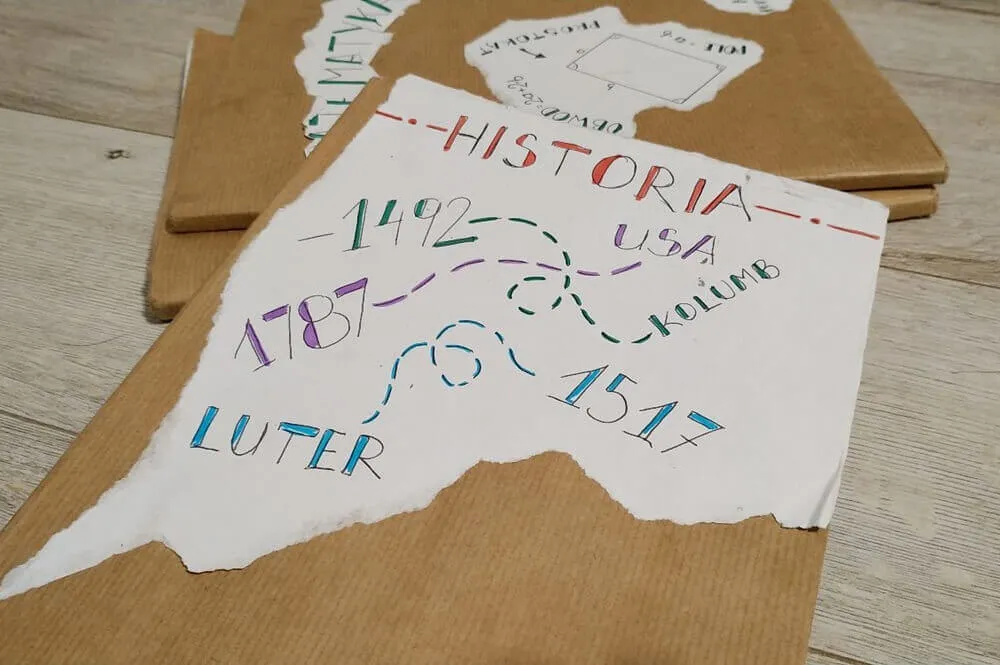 MATYKA
POLE = a·b
PROSTOKĄT
a
b
OBWÓD=2a+2b
HISTORIA
1492
USA
KOLUMB
1787
1517
LUTER